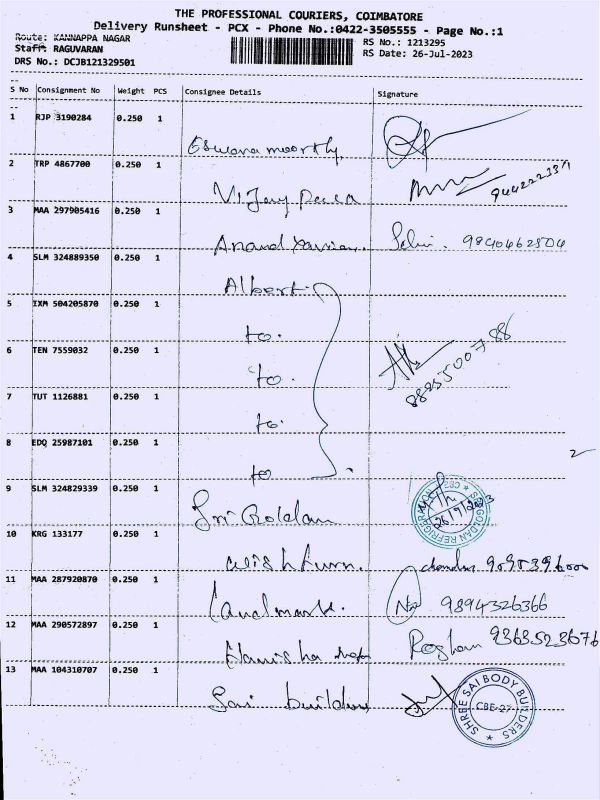 THE PROFESSIONAL COURIERS, COIMBATORE
Delivery Runsheet - PCX - Phone No.:0422-3505555 - Page No.:1
Route: KANNAPPA NAGAR
RS No.: 1213295
Staff: RAGUVARAN
RS Date: 26-Jul-2023
DRS No.: DCJB121329501
S No Consignment No Weight PCS Consignee Details Signature
1 RJP 3190284 0.250 1
Eswara moorthy,
2 TRP 4867700 0.250 1
Vijay
3 MAA 297905416 0.250 1
Anand 9840462804
4 SLM 324889350 0.250 1
Albert.
5 IXM 504205870 0.250 1
to.
6 TEN 7559032 0.250 1
to. 8825500788
7 TUT 1126881 0.250 1
to.
8 EDQ 25987101 0.250 1
to
9 SLM 324829339 0.250 1
Sri Goldan
26/7/2023
10 KRG 133177 0.250 1
wish furn.
11 MAA 287920870 0.250 1
Landmark. 9894326366
12 MAA 290572897 0.250 1
Roshan 9363523676
13 MAA 104310707 0.250 1
Sai builders
SHREE SAI BODY BUILDERS
CBE-27